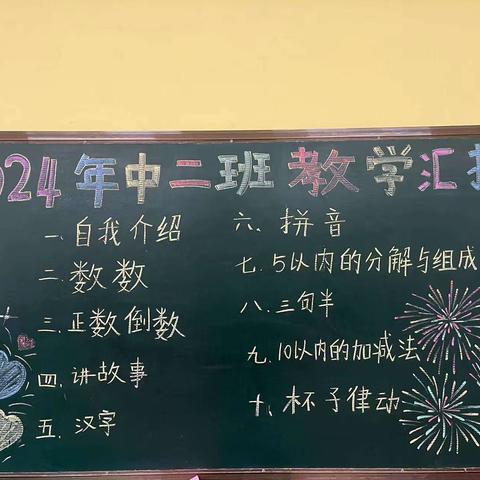 024年中二班教学汇
一、自我介绍
二、数数
三、正数倒数
四、讲故事
五、汉字
六、拼音
七、5以内的分解与组成
八、三句半
九、10以内的加减法
十、杯子律动